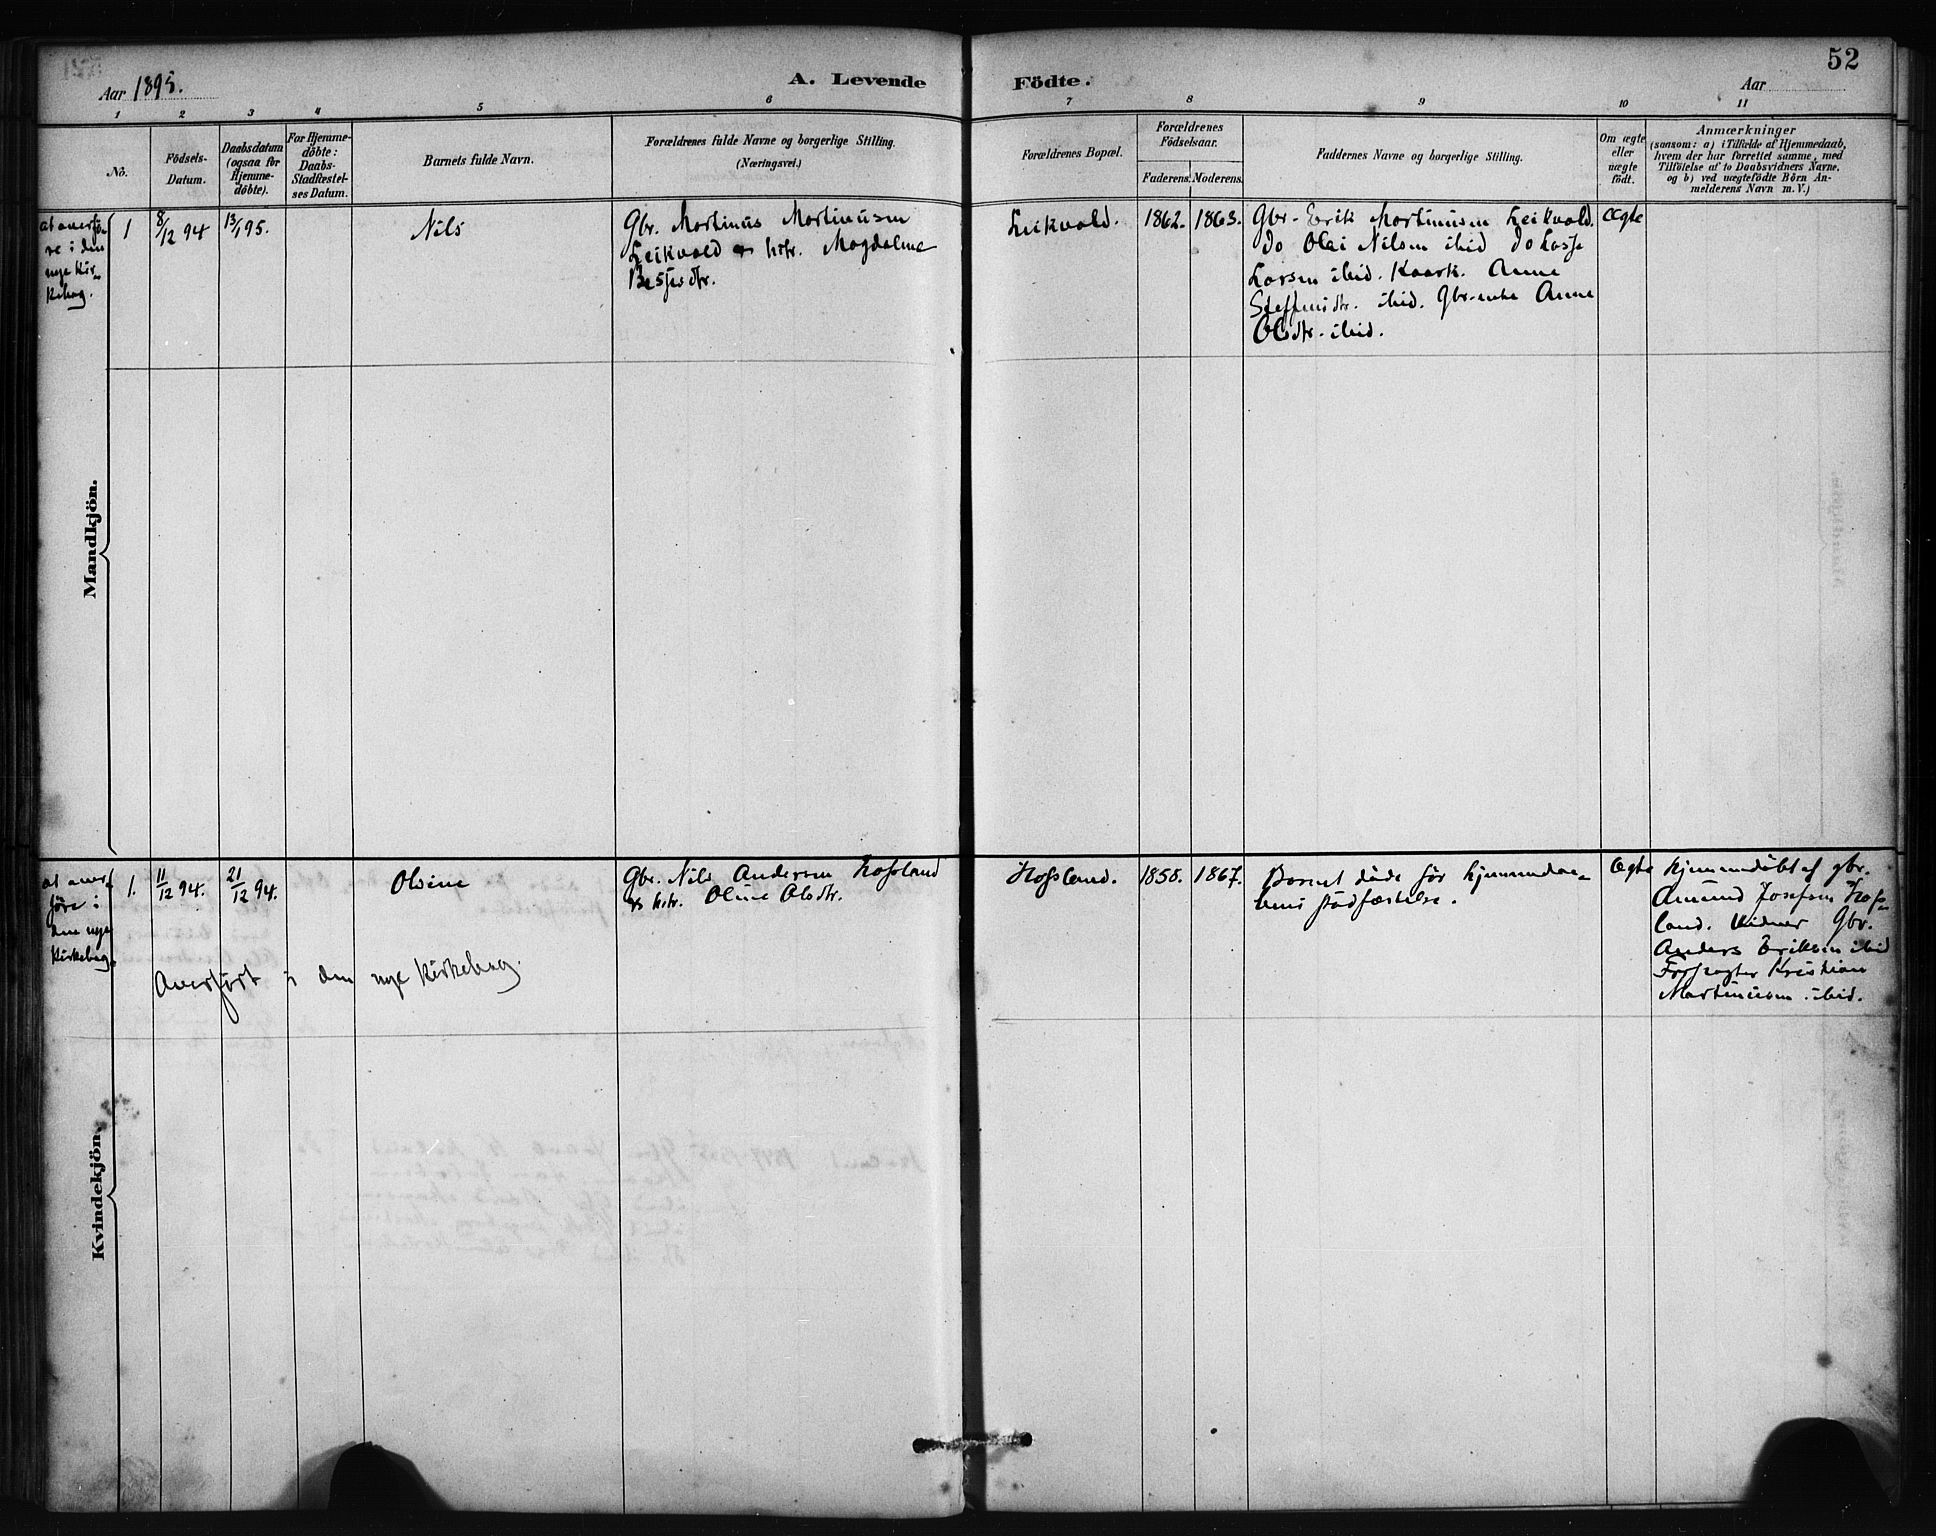 52
Aar 1895.
A. Levende Födte.
Aar
1 2 3 4 5 6 7 8 9 10 11
No.
Födsels-
Datum.
Daabsdatum
(ogsaa for
Hjemme-
döbte).
For Hjemme-
döbte:
Daabs-
Stadfæstel-
ses Datum.
Barnets fulde Navn.
Forældrenes fulde Navne og borgerlige Stilling.
(Næringsvei.)
Forældrenes Bopæl.
Forældrenes
Födselsaar.
Faderens. Moderens.
Faddernes Navne og borgerlige Stilling.
Om ægte
eller
uægte
födt.
Anmærkninger
(saasom: a) i Tilfælde af Hjemmedaab,
hvem der har forrettet samme, med
Tilföielse af to Daabsvidners Navne,
og b) ved uægtefödte Börn An-
melderens Navn m. V.)
Mandkjön.
at overfö-
re i den
nye Kir-
kebog.
1
8/12 94
13/1 95.
Nils
Gbr. Martinus Martinusen
Leikvold og hstr. Magdalene
Leikvold.
1862.
1863.
Gbr. Erik Martinusen Leikvold.
Do Olai Nilsen ibid Do Lasse
Larsen ibid. Kaark. Anne
Steffensdtr. ibid. Gbr.enke Anne
Olsdtr. ibid.
Ægte
Kvindekjön.
at over-
före i
den nye
Kirkebog.
1.
11/12 94.
21/12 94.
Olsine
Gbr. Nils Andersen Hofsland
og hstr. Oline Olsdtr.
Hofsland.
1858.
1867.
Barnet døde før hjemmedaa-
bens stadfæstelse.
Ægte
Hjemmedöbt af gbr.
Amund Josefsen Hofs-
land. Vidner Gbr.
Anders Eriksen ibid
Forpagter Kristian
Martinusen ibid.
Overført i den nye Kirkebog.